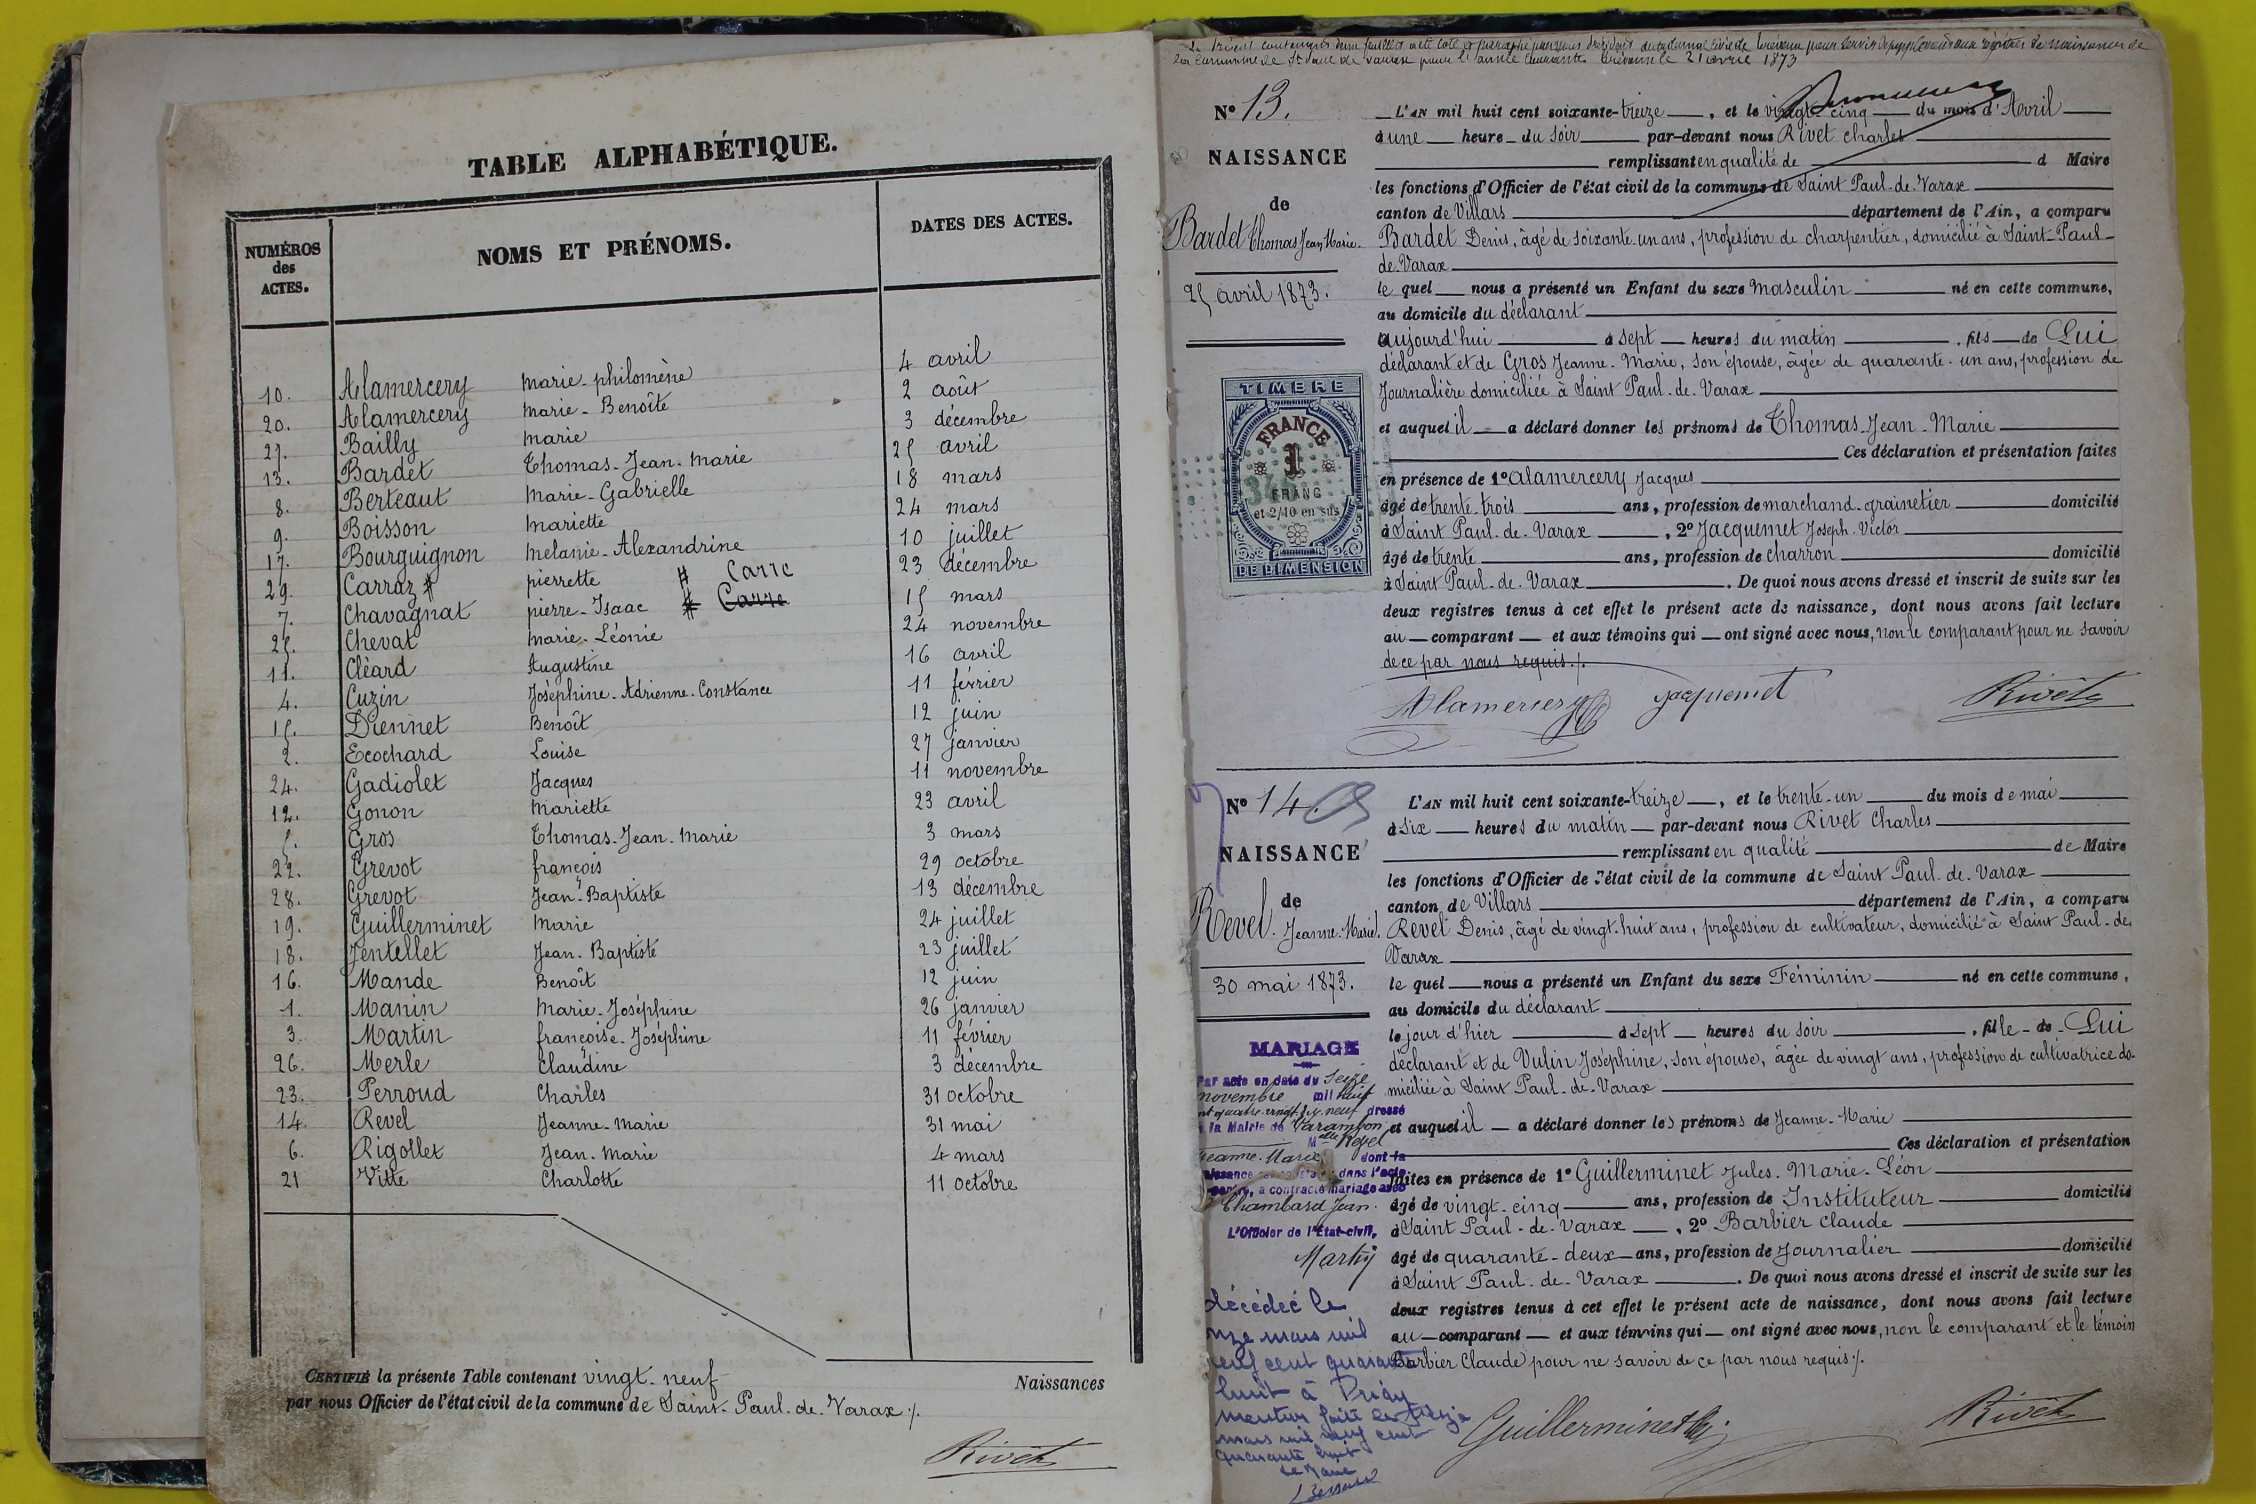 TABLE ALPHABÉTIQUE.
NUMÉROS des ACTES. NOMS ET PRÉNOMS. DATES DES ACTES.
10. Alamercery Marie-philomène 4 avril
20. Alamercery Marie-Benoîte 2 août
27. Bailly Marie 3 décembre
13. Bardet Thomas-Jean-Marie 25 avril
8. Berteaut Marie-Gabrielle 18 mars
9. Boisson Mariette 24 mars
17. Bourguignon Melanie-Alexandrine 10 juillet
29. Carraz # pierrette # Carre 23 décembre
7. Chavagnat pierre-Isaac # Carre 15 mars
25. Chevat Marie-Léonie 24 novembre
11. Cléard Augustine 16 avril
4. Cuzin Joséphine-Adrienne-Constance 11 février
15. Diennet Benoît 12 juin
2. Ecochard Louise 27 janvier
24. Gadiolet Jacques 11 novembre
12. Gonon Mariette 23 avril
5. Gros Thomas-Jean-Marie 3 mars
22. Grevot françois 29 octobre
28. Grevot Jean-Baptiste 13 décembre
19. Guillerminet Marie 24 juillet
18. Jentellet Jean-Baptiste 23 juillet
16. Mande Benoît 12 juin
1. Manin Marie-Joséphine 26 janvier
3. Martin françoise-Joséphine 11 février
26. Merle Claudine 3 décembre
23. Perroud Charles 31 octobre
14. Revel Jeanne-Marie 31 mai
6. Rigollet Jean-Marie 4 mars
21 Vitte Charlotte 11 octobre
CERTIFIÉ la présente Table contenant vingt-neuf Naissances
par nous Officier de l'état civil de la commune de Saint-Paul-de-Varax ./.
Rivet
la commune de St Paul de Varax pour l'année courante. Trévoux le 21 avril 1873
N° 13.
NAISSANCE
de
Bardet Thomas Jean Marie.
25 avril 1873.
TIMBRE
FRANCE
1
FRANC
et 2/10 en sus
DE DIMENSION
L'AN mil huit cent soixante-treize, et le vingt-cinq du mois d'Avril
à une heure du soir par-devant nous Rivet Charles
remplissant en qualité de d Maire
les fonctions d'Officier de l'état civil de la commune de Saint Paul-de-Varax
canton de Villars département de l'Ain, a comparu
Bardet Denis, âgé de soixante-un ans, profession de charpentier, domicilié à Saint-Paul-
de-Varax
le quel nous a présenté un Enfant du sexe masculin né en cette commune,
au domicile du déclarant
aujourd'hui à sept heures du matin, fils de Lui
déclarant et de Gros Jeanne-Marie, son épouse, âgée de quarante-un ans, profession de
Journalière domiciliée à Saint Paul-de-Varax
et auquel il a déclaré donner les prénoms de Thomas-Jean-Marie
Ces déclaration et présentation faites
en présence de 1° Alamercery Jacques
âgé de trente-trois ans, profession de marchand-grainetier domicilié
à Saint Paul-de-Varax, 2° Jacquemet Joseph-Victor
âgé de trente ans, profession de charron domicilié
à Saint Paul-de-Varax. De quoi nous avons dressé et inscrit de suite sur les
deux registres tenus à cet effet le présent acte de naissance, dont nous avons fait lecture
au comparant et aux témoins qui ont signé avec nous, non le comparant pour ne savoir
de ce par nous requis ./.
Alamercery Jacquemet Rivet
N° 14.
NAISSANCE
de
Revel Jeanne-Marie.
30 mai 1873.
MARIAGE
Par acte en date du Seize
novembre mil huit
cent quatre-vingt-dix-neuf dressé
à la Mairie de Varambon
Melle Revel
Jeanne-Marie dont la
naissance dans l'acte
a contracté mariage avec
Chambard Jean.
L'Officier de l'État-civil,
Martin
décédée le
onze mars mil
neuf cent quarante
huit à Druillat
mars mil neuf cent
quarante huit
Le Maire
L'AN mil huit cent soixante-treize, et le trente-un du mois de mai
à six heures du matin par-devant nous Rivet Charles
remplissant en qualité de Maire
les fonctions d'Officier de l'état civil de la commune de Saint Paul-de-Varax
canton de Villars département de l'Ain, a comparu
Revel Denis, âgé de vingt-huit ans, profession de cultivateur, domicilié à Saint Paul-de-
Varax
le quel nous a présenté un Enfant du sexe Féminin né en cette commune,
au domicile du déclarant
le jour d'hier à sept heures du soir, fille de Lui
déclarant et de Vulin Joséphine, son épouse, âgée de vingt ans, profession de cultivatrice do-
miciliée à Saint Paul-de-Varax
et auquel il a déclaré donner les prénoms de Jeanne-Marie
Ces déclaration et présentation
faites en présence de 1° Guillerminet Jules-Marie-Léon
âgé de vingt-cinq ans, profession de Instituteur domicilié
à Saint Paul-de-Varax, 2° Barbier Claude
âgé de quarante-deux ans, profession de Journalier domicilié
à Saint Paul-de-Varax. De quoi nous avons dressé et inscrit de suite sur les
deux registres tenus à cet effet le présent acte de naissance, dont nous avons fait lecture
au comparant et aux témoins qui ont signé avec nous, non le comparant et le témoin
Barbier Claude pour ne savoir de ce par nous requis ./.
Guillerminet Rivet